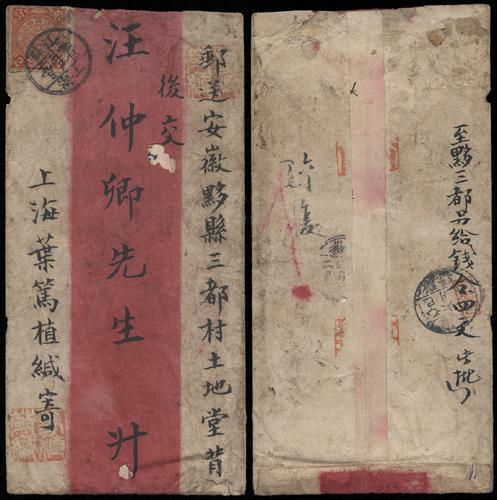 郵送安徽黟縣三都村土地堂背
後交
汪仲卿先生 升
上海葉篤植緘寄
至黟三都另給錢
四文